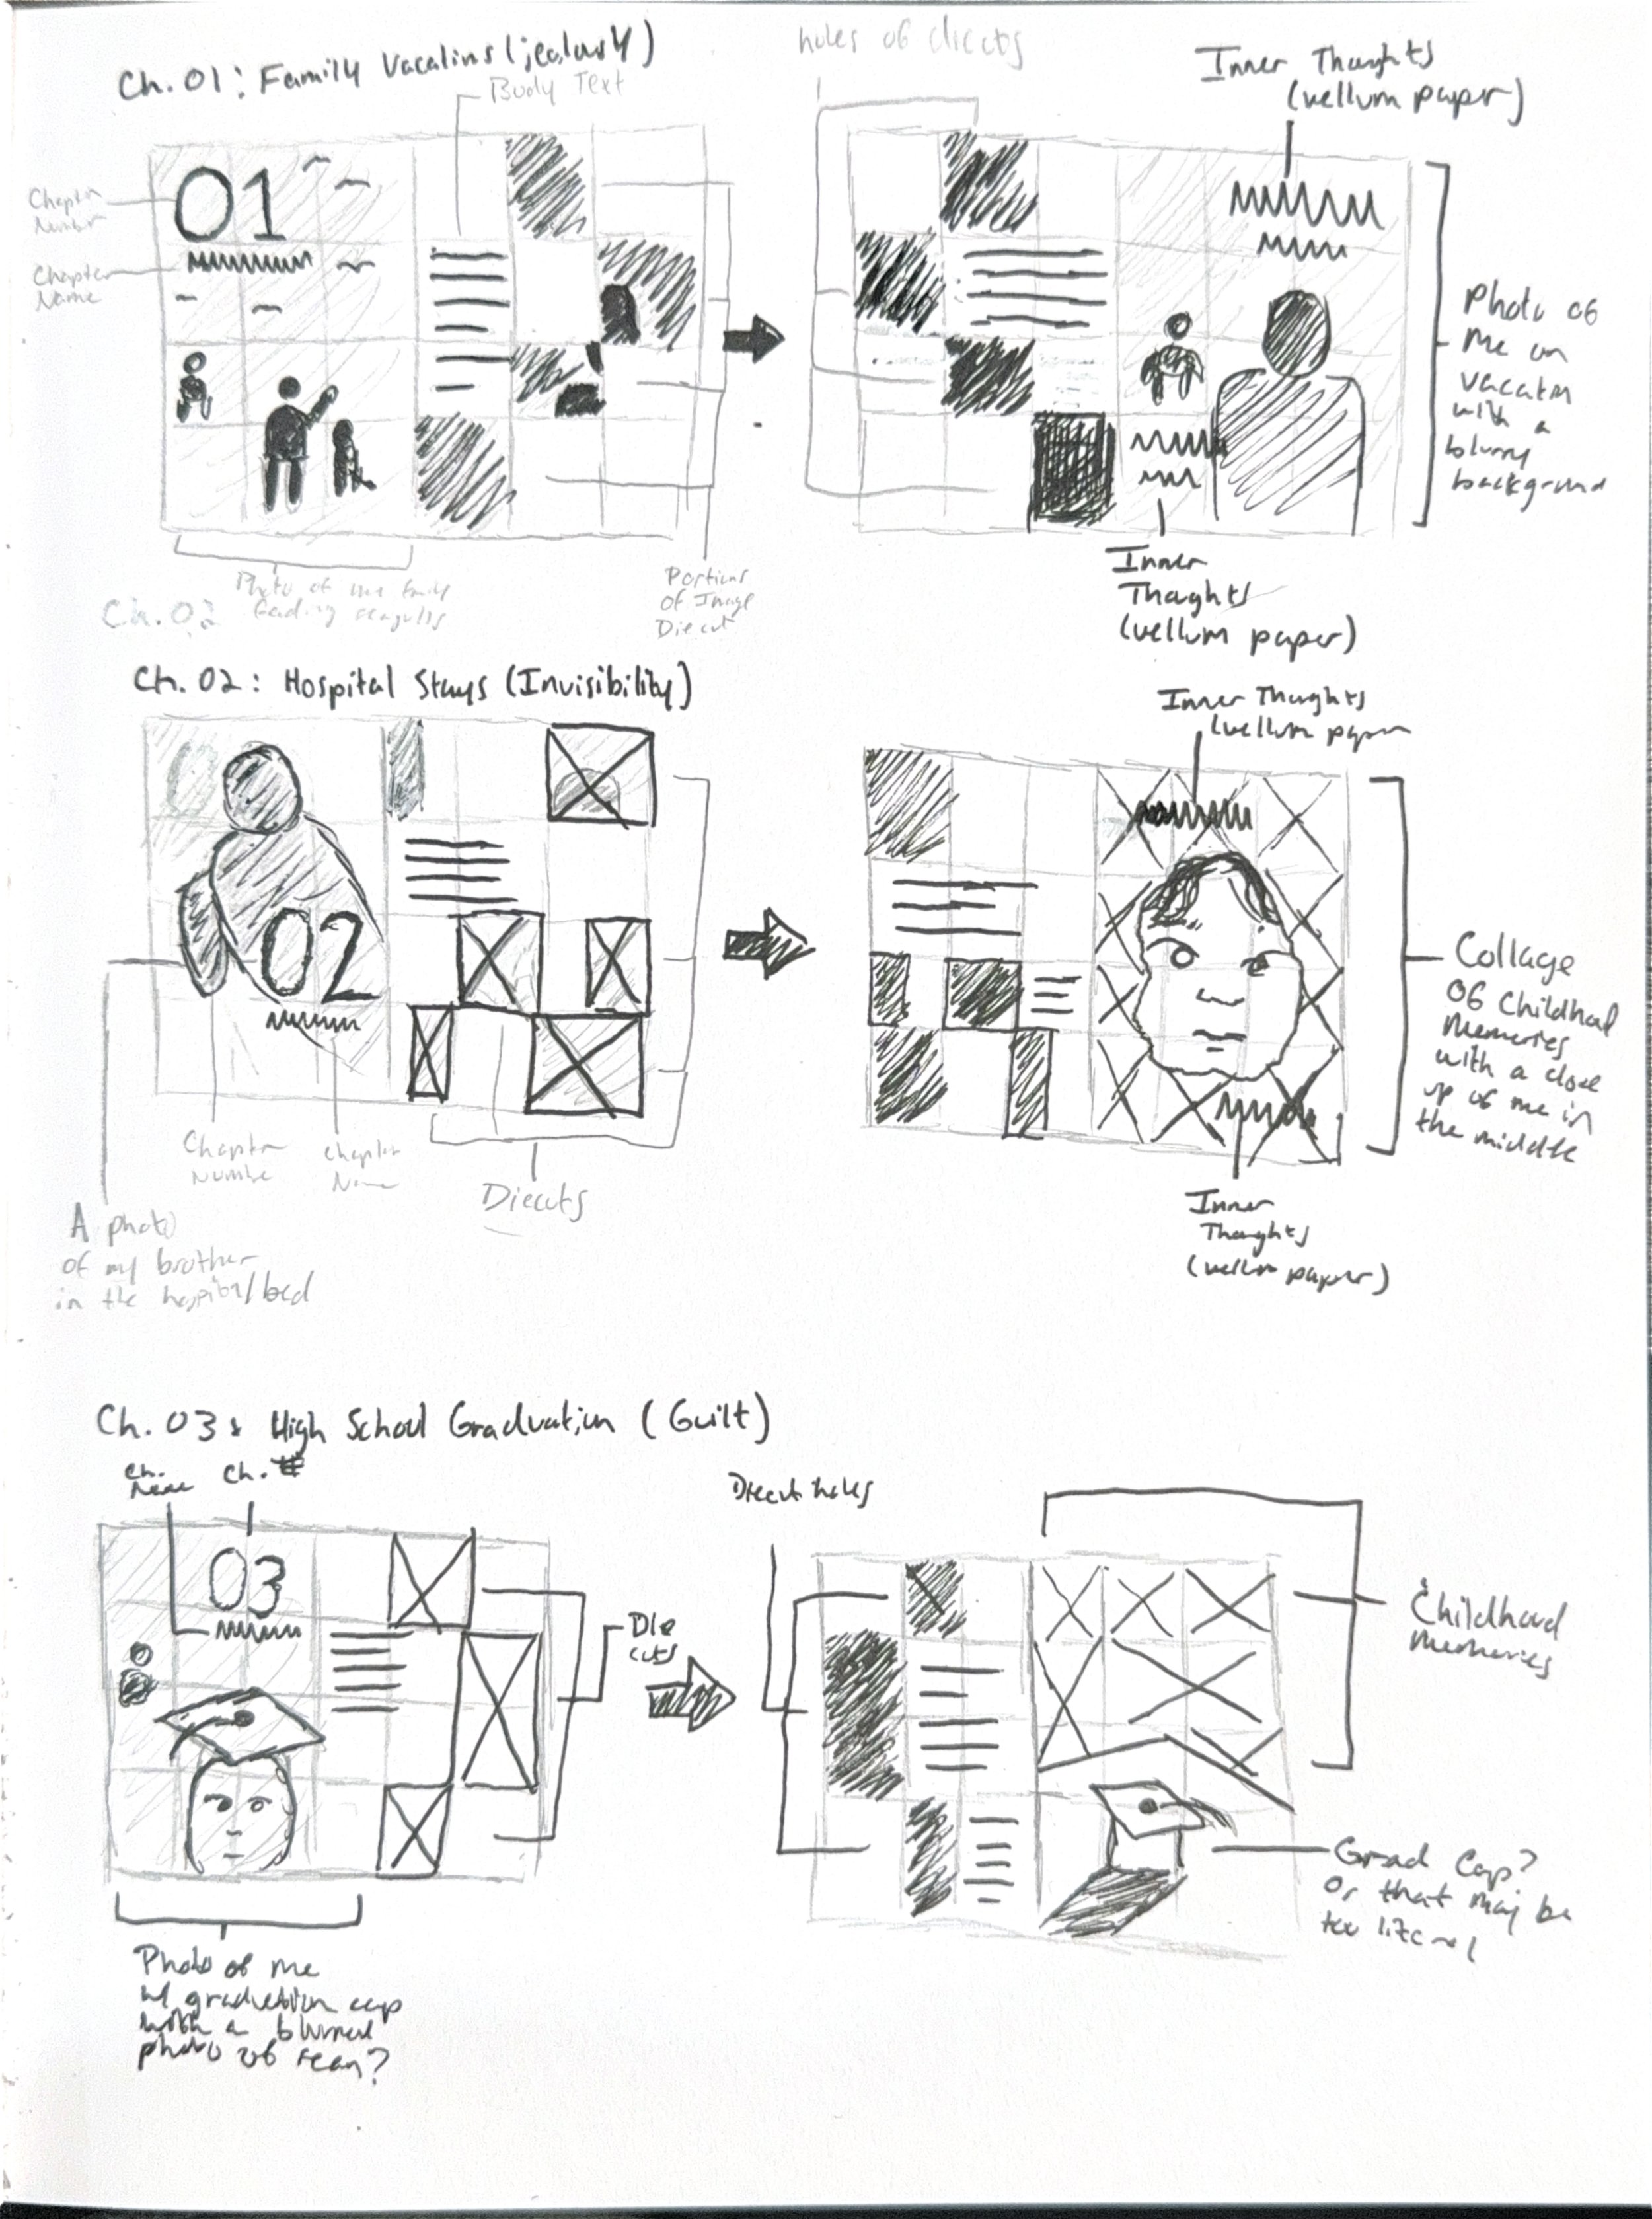 Ch. 01: Family Vacations (jealousy)
Body Text
holes of diecuts
Inner Thoughts
(vellum paper)
Chapter
Number
01
Chapter
Name
Photo of
me on
vacation
with a
blurry
background
Photo of my family
feeding seagulls
Portions
of Image
Diecut
Inner
Thoughts
(vellum paper)
Ch. 02
Ch. 02: Hospital Stays (Invisibility)
Inner Thoughts
(vellum paper
02
Collage
of Childhood
Memories
with a close
up of me in
the middle
Chapter
Number
Chapter
Name
Diecuts
A photo
of my brother
in the hospital bed
Inner
Thoughts
(vellum paper)
Ch. 03: High School Graduation (Guilt)
Ch.
Name
Ch. #
Diecut holes
03
Die
cuts
Childhood
Memories
Grad Cap?
Or that may be
too literal
Photo of me
w/ graduation cap
with a blurred
photo of Sean?